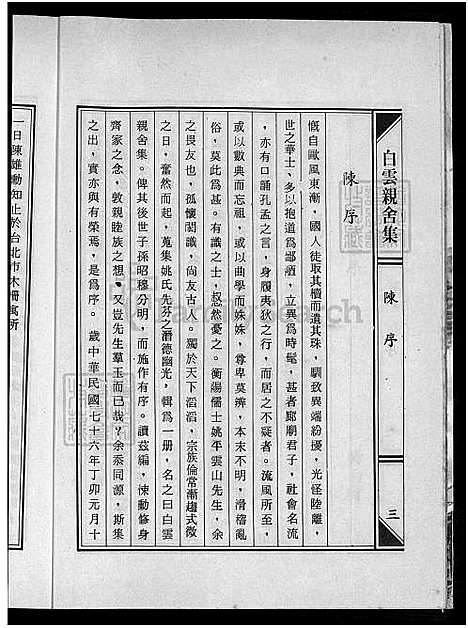 白雲親舍集
陳序
三
陳序
慨自歐風東漸，國人徒取其櫝而遺其珠，馴致異端紛擾，光怪陸離，
世之華士、多以抱道為鄙陋，立異為時髦，甚者廊廟君子，社會名流
，亦有口誦孔孟之言，身履夷狄之行，而居之不疑者。流風所至，
或以數典而忘祖，或以曲學而姝姝，尊卑莫辨，本末不明，滑稽亂
俗，莫此為甚。有識之士，惄然憂之。衡陽儒士姚平雲山先生，余
之畏友也，孤懷閎識，尚友古人。獨於天下滔滔，宗族倫常漸趨式微
之日，奮然而起，蒐集姚氏先芬之潛德幽光，輯為一册，名之曰白雲
親舍集。俾其後世子孫昭穆分明，而施作有序。讀茲編，悚動修身
齊家之念，敦親睦族之想，又豈先生羣玉而已哉？余忝同源，斯集
之出，實亦與有榮焉，是為序。 歲中華民國七十六年丁卯元月十
一日陳雄勳知止於台北市木柵寓所